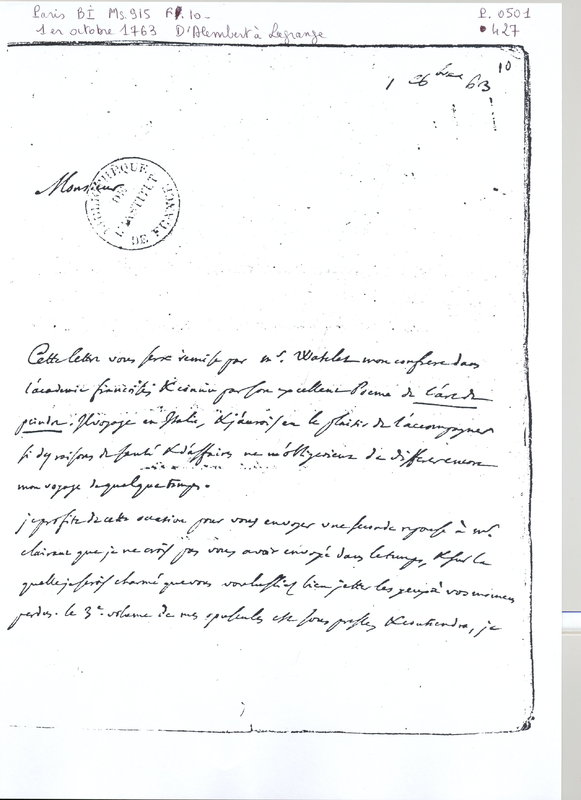 Paris BI Ms. 915 F. 10 - P. 0501
1er octobre 1763 D'Alembert à Lagrange 427
10
1 8bre 63
Monsieur
BIBLIOTHEQUE DE L'INSTITUT DE FRANCE
Cette lettre vous sera remise par mr. Watelet mon confrere dans
l'academie françoise, & connu par son excellent Poeme de l'art de
peindre. Il voyage en Italie, & j'aurois eu le plaisir de l'accompagner
si des raisons de santé & d'affaires ne m'obligeoient de differer encore
mon voyage de quelque temps.
je profite de cette occasion pour vous envoyer une seconde reponse à mr.
clairaut que je ne crois pas vous avoir envoyé dans le temps, & sur la
quelle je serois charmé que vous voulussiez bien jetter les yeux à vos momens
perdus. le 3e. volume de mes opuscules est sous presse, & contiendra, je